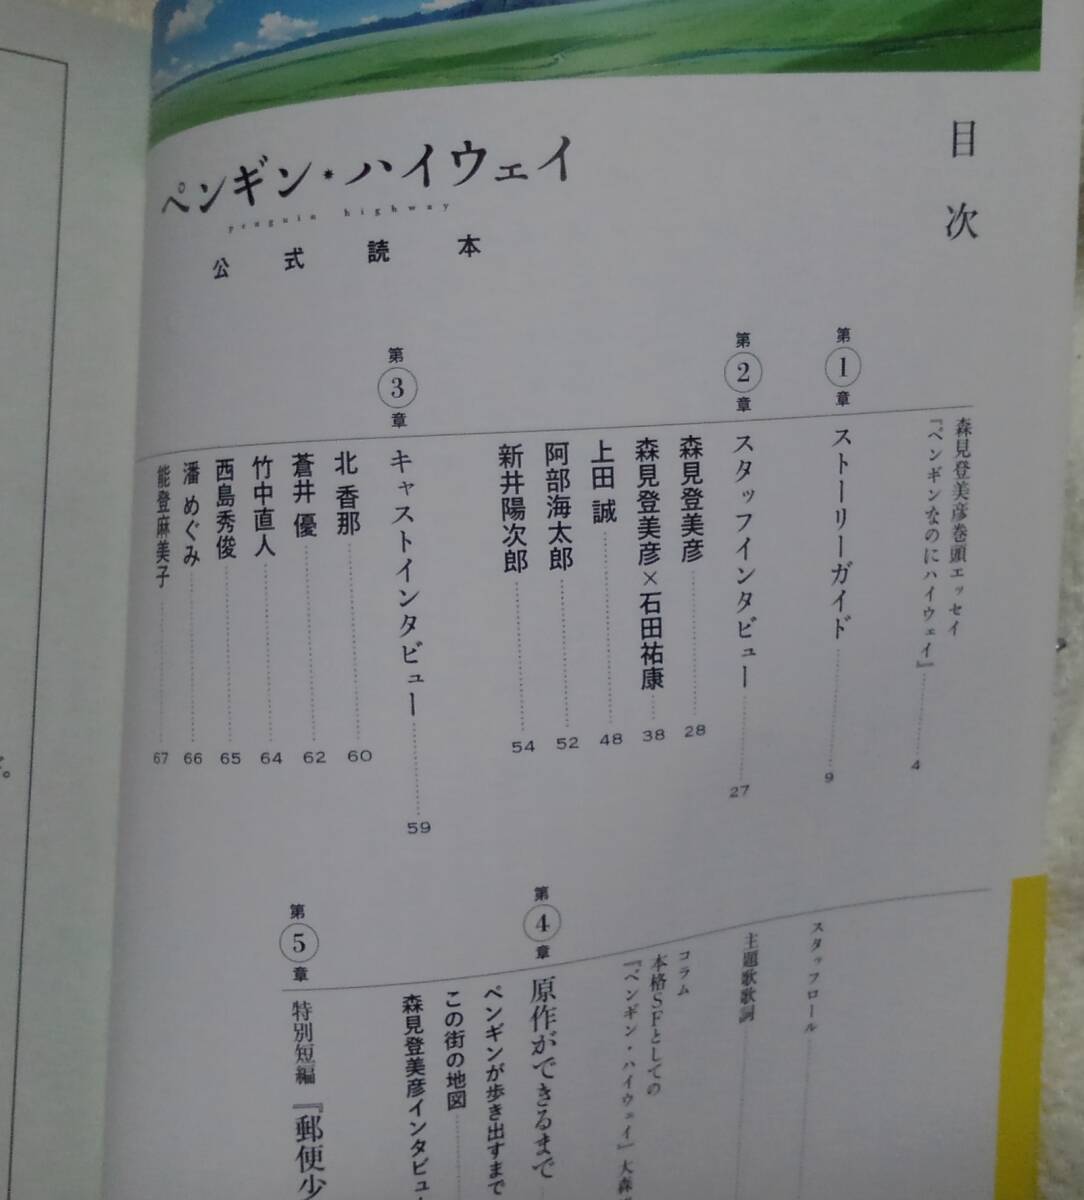 目次
ペンギン・ハイウェイ
penguin highway
公式読本
森見登美彦巻頭エッセイ
『ペンギンなのにハイウェイ』 4
第1章 ストーリーガイド 9
第2章 スタッフインタビュー 27
森見登美彦 28
森見登美彦×石田祐康 38
上田 誠 48
阿部海太郎 52
新井陽次郎 54
第3章 キャストインタビュー 59
北 香那 60
蒼井 優 62
竹中直人 64
西島秀俊 65
潘 めぐみ 66
能登麻美子 67
スタッフロール
主題歌歌詞
コラム
本格SFとしての
『ペンギン・ハイウェイ』 大森
第4章 原作ができるまで
ペンギンが歩き出すまで
この街の地図
森見登美彦インタビュー
第5章 特別短編 『郵便少